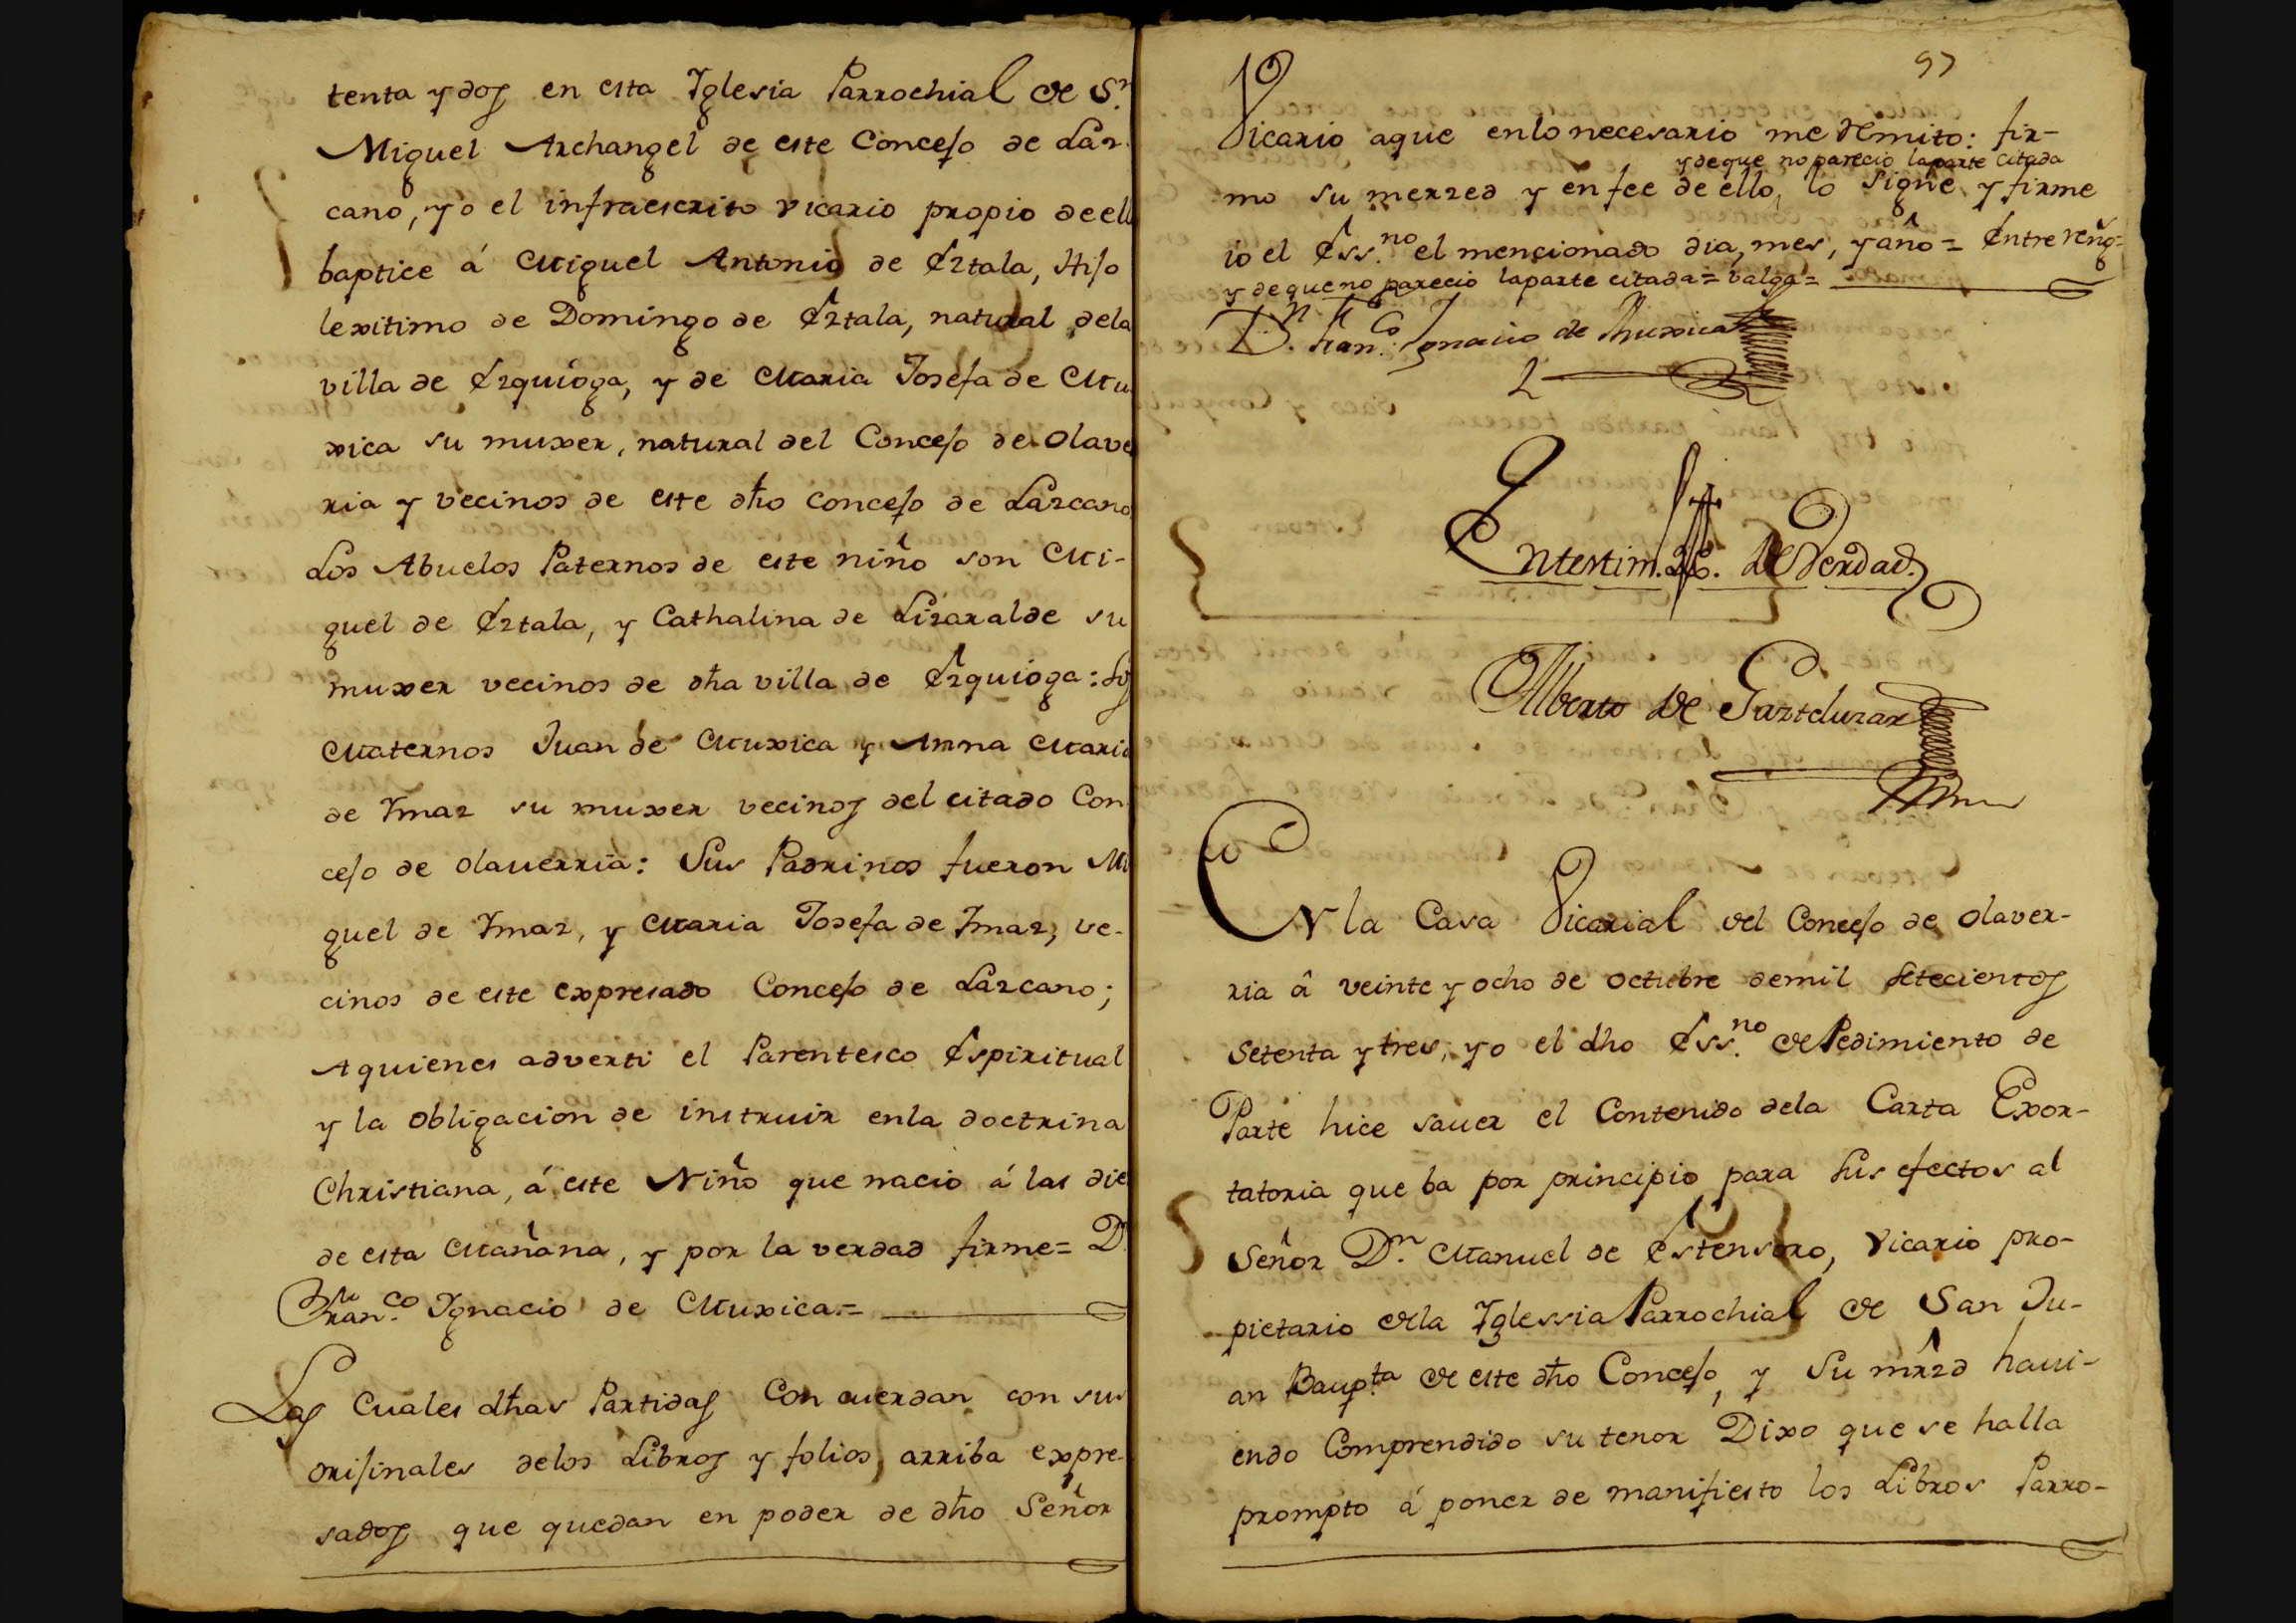 tenta y dos en esta Yglesia Parrochial de Sn.
Miguel Archangel de este Concejo de Laz-
cano, yo el infraescrito vicario propio de ell
baptice á Miguel Antonio de Eztala, Hijo
lexitimo de Domingo de Eztala, natural dela
villa de Ezquioga, y de Maria Josefa de Mu
xica su muxer, natural del Concejo de Olave
ria y vecinos de este dho concejo de Lazcano
Los Abuelos Paternos de este niño son Mi-
guel de Eztala, y Cathalina de Lizaralde su
muxer vecinos de dha villa de Ezquioga: Los
Maternos Juan de Muxica y Anna Maria
de Ymaz su muxer vecinos del citado Con
cejo de olaverria: Sus Padrinos fueron Mi
guel de Ymaz, y Maria Josefa de Ymaz, ve-
cinos de este expresado Concejo de Lazcano;
Aquienes adverti el Parentesco Espiritual
y la obligacion de instruir enla doctrina
Christiana, á este Niño que nacio á las die
de esta Mañana, y por la verdad firme= D.
Franco. Ygnacio de Muxica.=
Las Cuales dhas Partidas Concuerdan con sus
orijinales delos Libros y folios arriba expre-
sados que quedan en poder de dho Señor
97
Vicario aque enlo necesario me remito: fir-
y deque no parecio laparte citada
mo su merzed y enfee de ello, lo signe, y firme
io el Essno. el mencionado dia, mes, y año = Entre rens=
y deque no parecio laparte citada= valga=
Dn. Franco. Ygnacio de Muxica
Entestim.o de Verdad.
Alberto de Gazteluzar
EN la Casa Vicarial del Concejo de olaver-
ria â veinte y ocho de octubre demil setecientos
setenta y tres, yo el dho Essno. de Pedimiento de
Parte hice saver el Contenido dela Carta Exor-
tatoria que ba por principio para sus efectos al
Señor Dn. Manuel de Estensoro, Vicario pro-
pietario dela Yglessia Parrochial de San Ju-
an Baupta. de este dho Concejo, y su mrzd havi-
endo Comprendido su tenor Dixo que se halla
prompto á poner de manifiesto los Libros Parro-